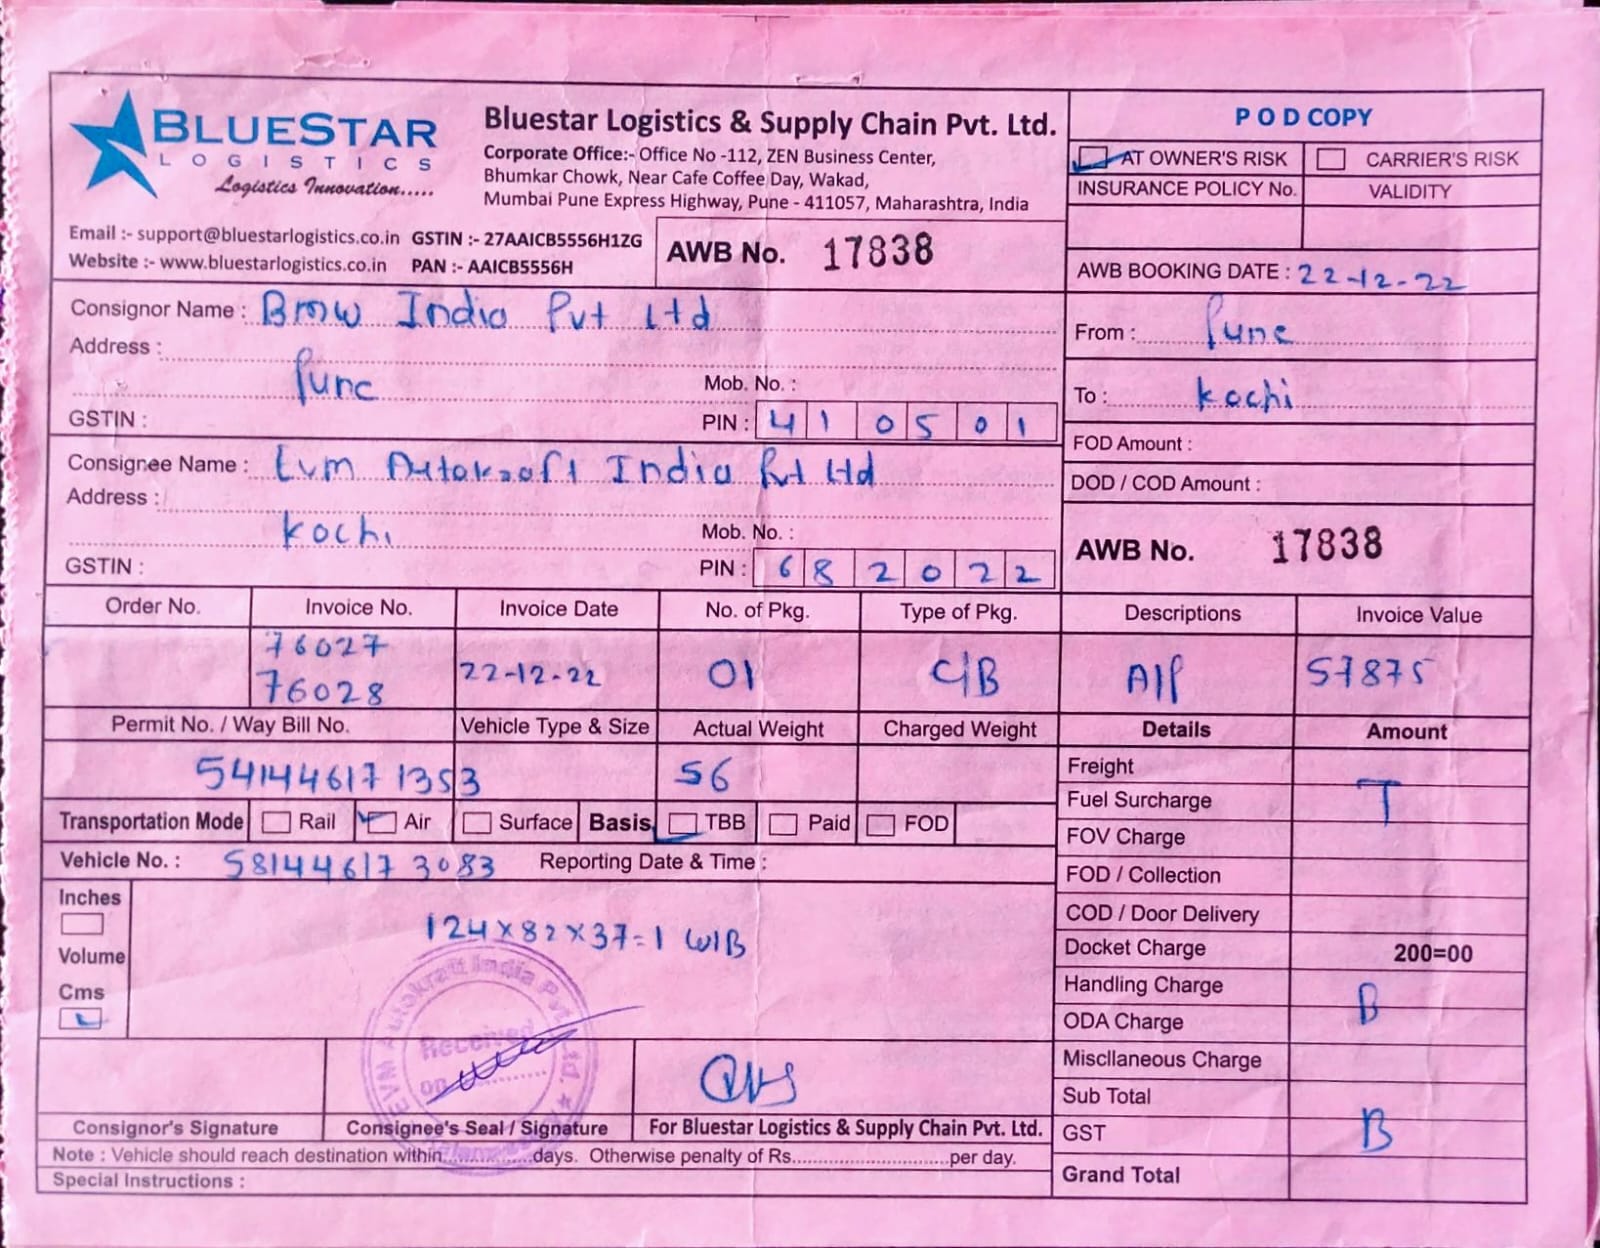 BLUESTAR
LOGISTICS
Logistics Innovation.....
Bluestar Logistics & Supply Chain Pvt. Ltd.
Corporate Office:- Office No -112, ZEN Business Center,
Bhumkar Chowk, Near Cafe Coffee Day, Wakad,
Mumbai Pune Express Highway, Pune - 411057, Maharashtra, India
Email :- support@bluestarlogistics.co.in GSTIN :- 27AAICB5556H1ZG
Website :- www.bluestarlogistics.co.in PAN :- AAICB5556H
AWB No. 17838
P O D COPY
AT OWNER'S RISK CARRIER'S RISK
INSURANCE POLICY No. VALIDITY
AWB BOOKING DATE : 22-12-22
Consignor Name : Bmw India Pvt Ltd
Address :
Pune
Mob. No. :
GSTIN : PIN : 410501
From : Pune
To : Kochi
FOD Amount :
DOD / COD Amount :
Consignee Name : Evm Autokraft India Pvt Ltd
Address :
Kochi
Mob. No. :
GSTIN : PIN : 682022
AWB No. 17838
Order No. Invoice No. Invoice Date No. of Pkg. Type of Pkg. Descriptions Invoice Value
76027
76028 22-12-22 01 C/B A/P 57875
Permit No. / Way Bill No. Vehicle Type & Size Actual Weight Charged Weight Details Amount
541446171353 56
Transportation Mode Rail Air Surface Basis TBB Paid FOD
Vehicle No. : 581446173083 Reporting Date & Time :
Inches
Volume
Cms
124x82x37=1 W/B
Freight
Fuel Surcharge T
FOV Charge
FOD / Collection
COD / Door Delivery
Docket Charge 200=00
Handling Charge
B
ODA Charge
Miscllaneous Charge
Sub Total
GST B
Grand Total
EVM Autokraft India Pvt. Ltd.
Received
on
Consignor's Signature Consignee's Seal / Signature For Bluestar Logistics & Supply Chain Pvt. Ltd.
Note : Vehicle should reach destination within..............days. Otherwise penalty of Rs............................per day.
Special Instructions :